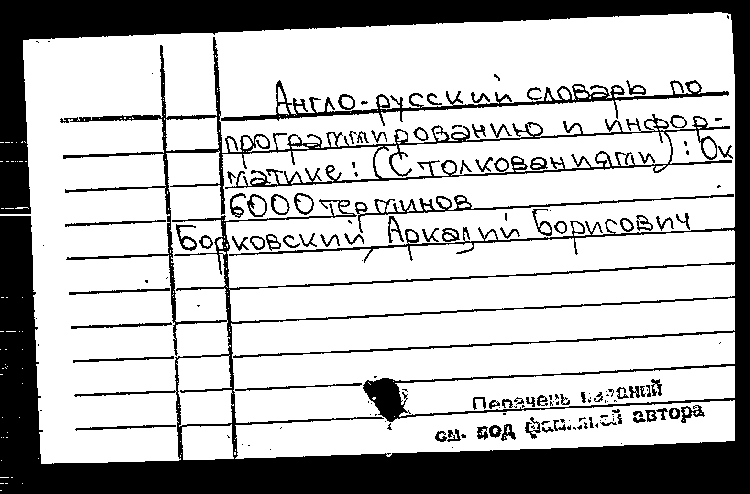 Англо-русский словарь по
программированию и инфор-
матике: (С толкованиями): Ок
6000 терминов
Борковский, Аркадий Борисович
Перечень изданий
см. под фамилией автора